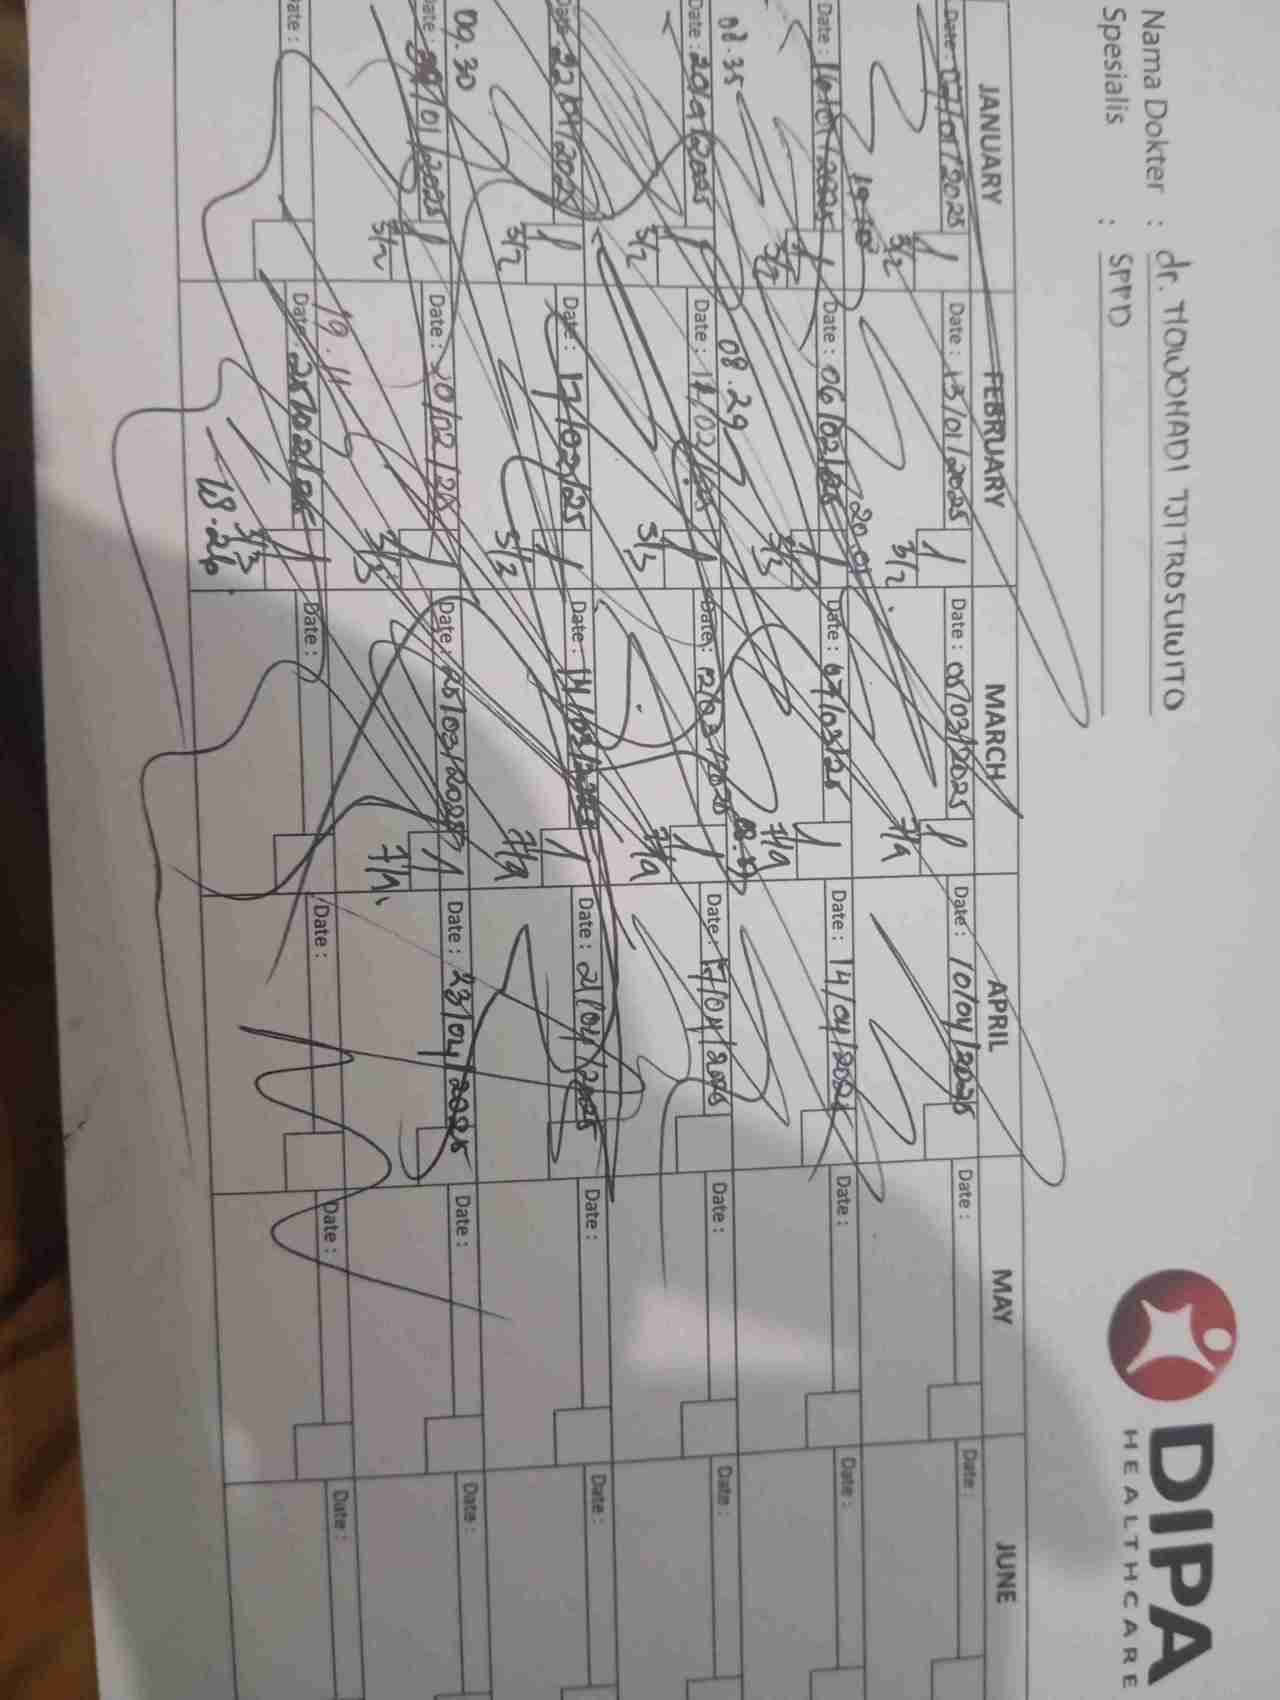 Nama Dokter : dr. TJOWOHADI TJITROSUWITO
Spesialis : SPPD
DIPA
HEALTHCARE
JANUARY FEBRUARY MARCH APRIL MAY JUNE
Date : 07/01/2025 Date : 13/01/2025 Date : 05/03/2025 Date : 10/04/2025 Date : Date :
3/2 3/2 7/4
19.10 20.01
Date : 16/01/2025 Date : 06/02/25 Date : 07/03/25 Date : 14/04/2025 Date : Date :
3/2 3/3 7/4
08.35 08.29
Date : 20/1/2025 Date : 12/02/25 Date : 12/03/2025 Date : 17/04/2025 Date : Date :
3/2 3/3 7/4
Date : 22/01/2025 Date : 17/02/25 Date : 14/03/2025 Date : 21/04/2025 Date : Date :
3/2 5/2 7/4
09.30
Date : 30/01/2025 Date : 20/02/25 Date : 25/03/2025 Date : 23/04/2025 Date : Date :
3/2 3/3 7/4
19.11
Date : Date : 25/02/25 Date : Date : Date : Date :
3/3
18.26